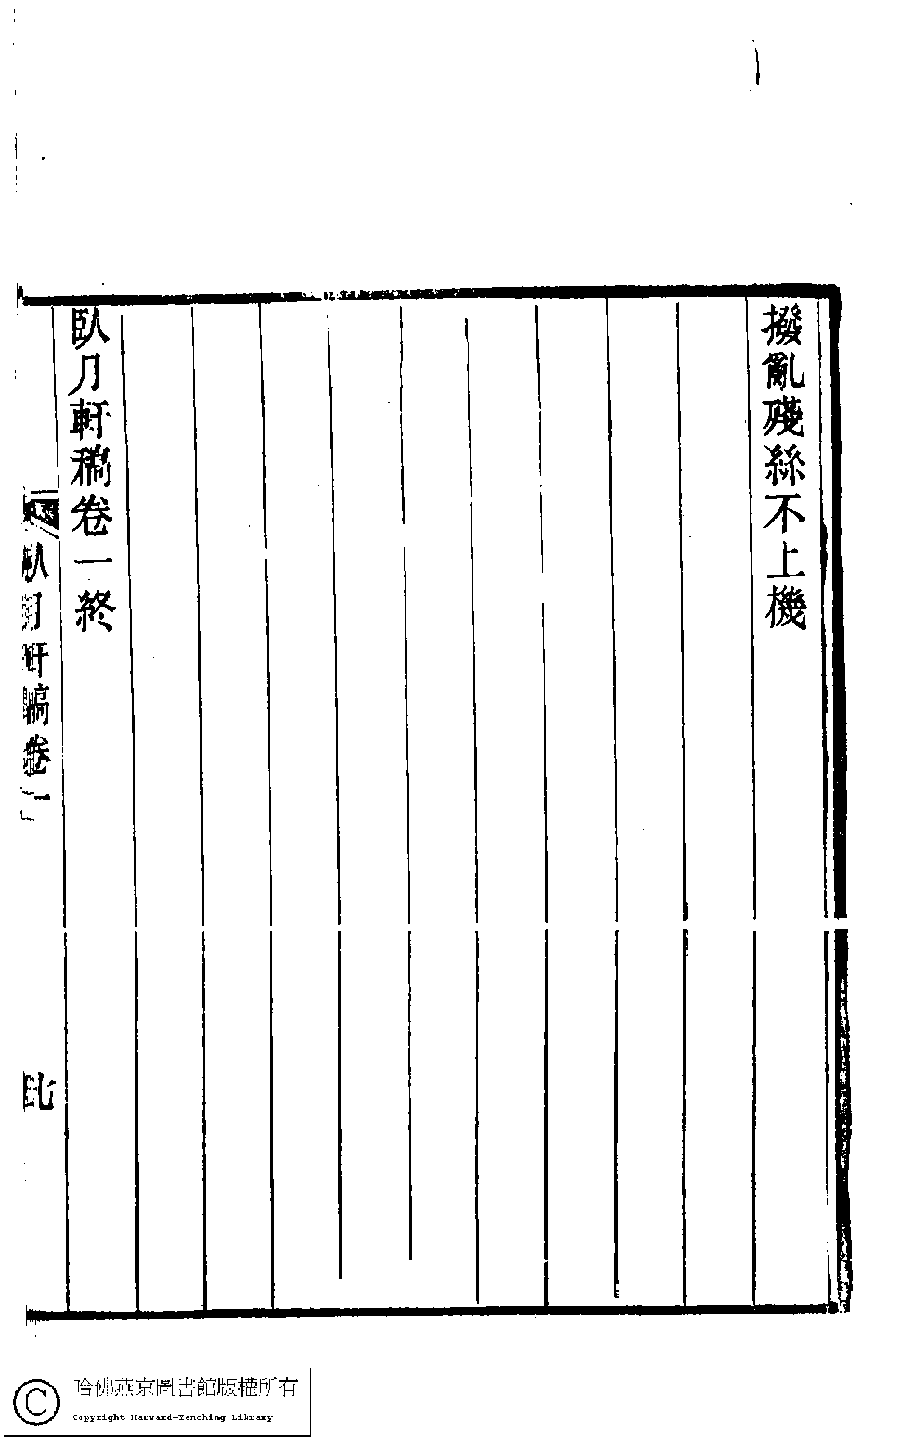 撥亂殘絲不上機
臥月軒稿卷一終
臥月軒稿卷一
哈佛燕京圖書館版權所有
Copyright Harvard-Yenching Library